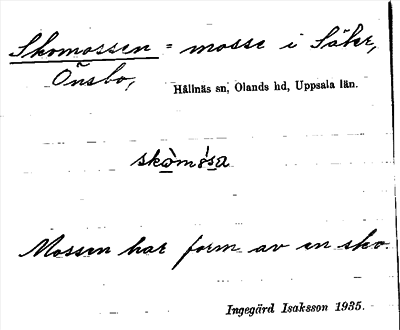 Skomossen = mosse i Säkr,
Önsbo,
Hållnäs sn, Olands hd, Uppsala län.
skòmósa
Mossen har form av en sko.
Ingegärd Isaksson 1935.